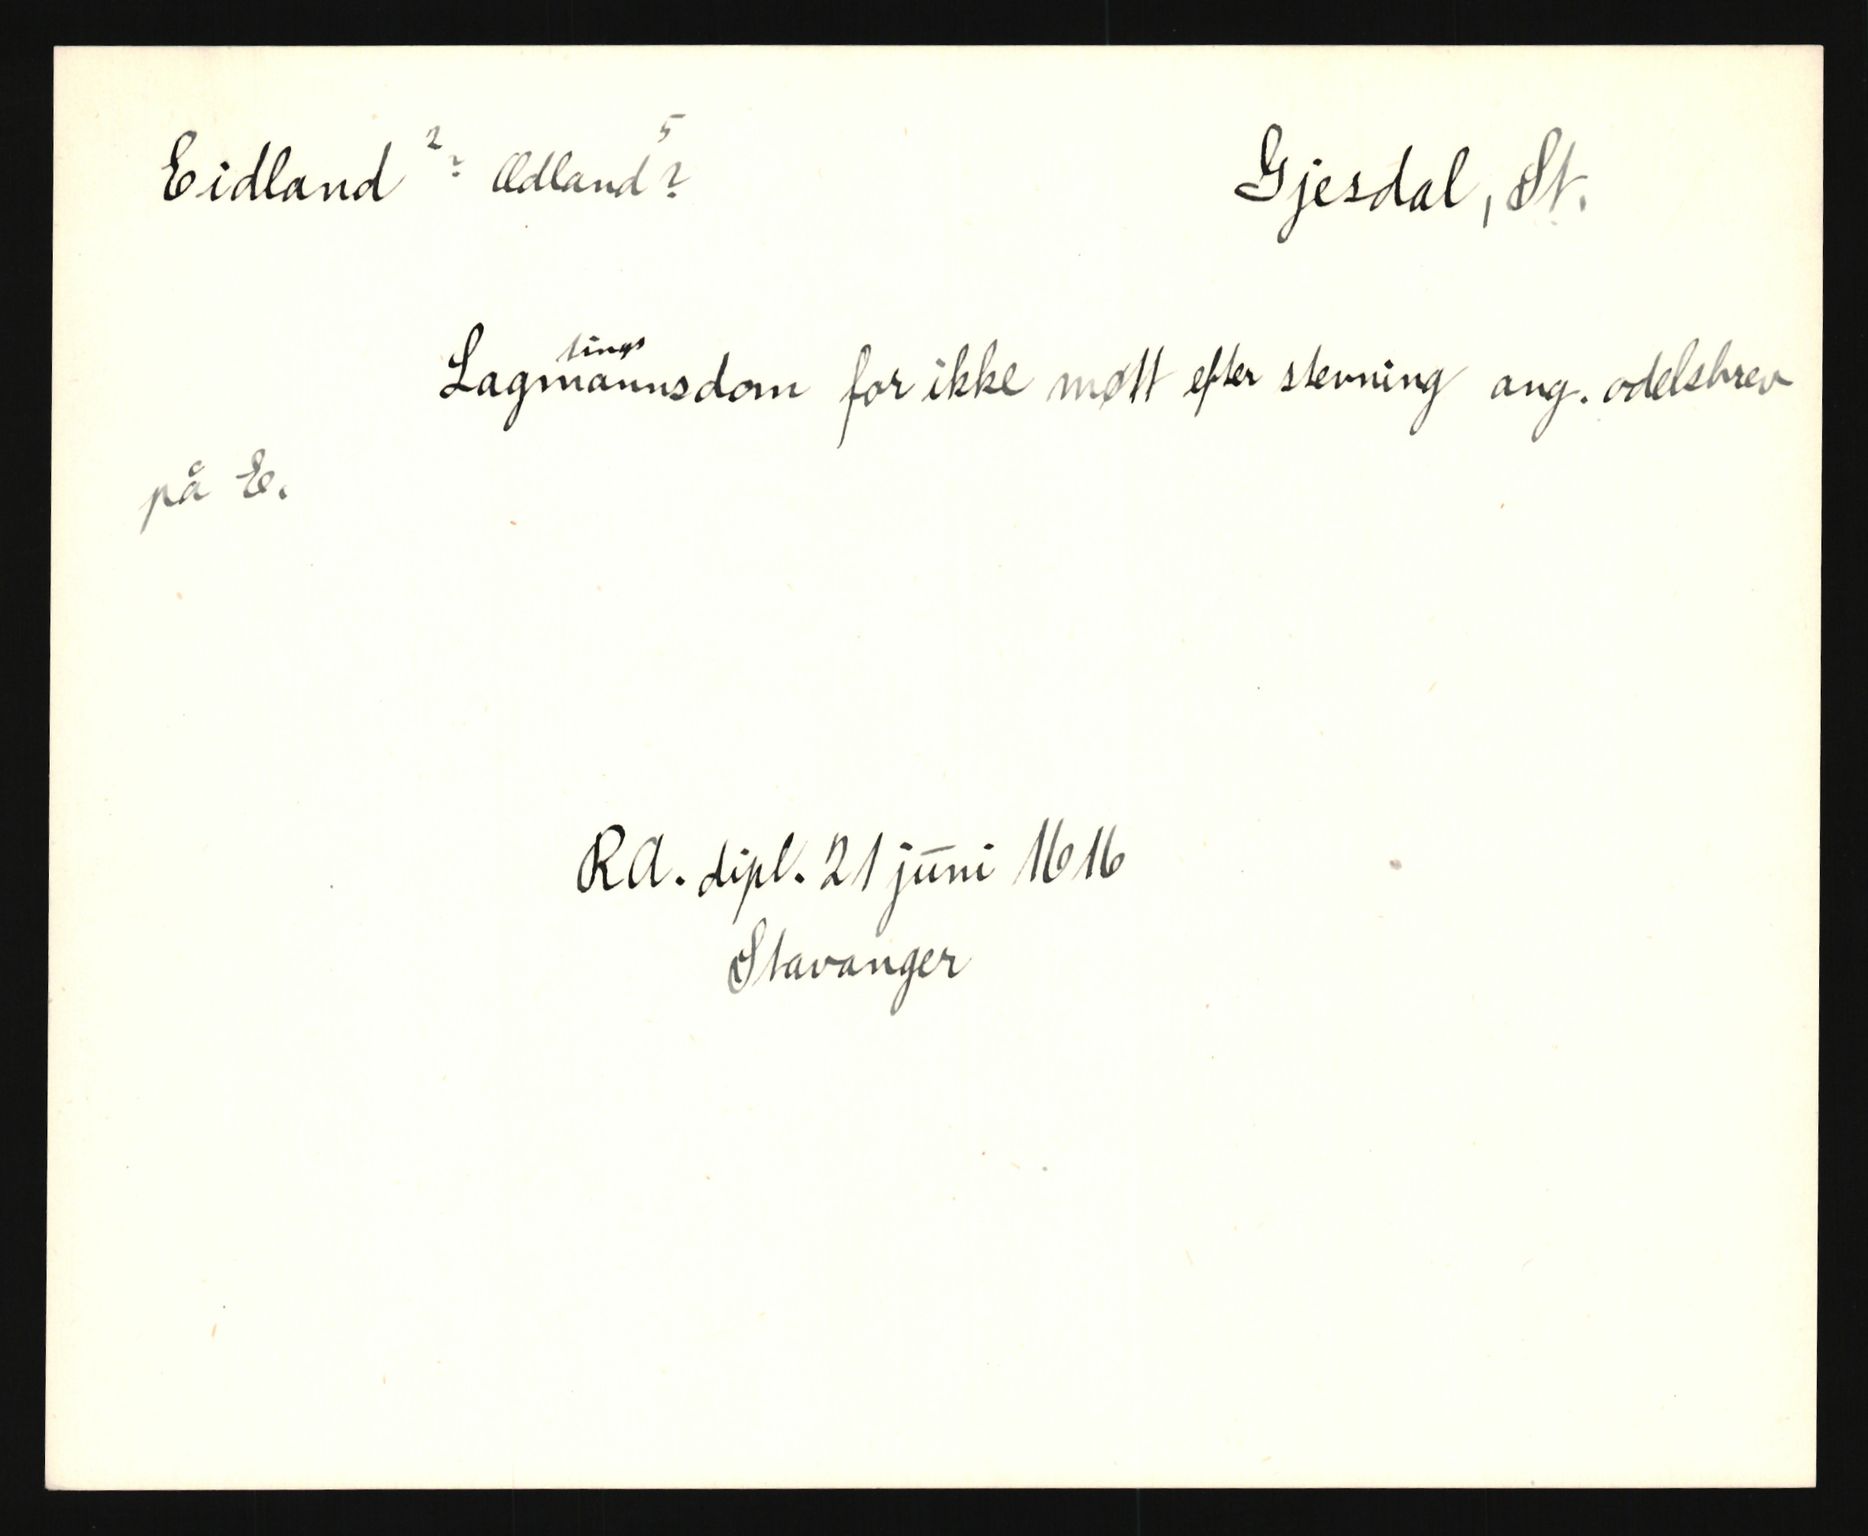 Eidland ²? Ødland ⁵? Gjesdal, St.
tings
Lagmannsdom for ikke møtt efter stevning ang. odelsbrev
på E.
RA. dipl. 21 juni 1616
Stavanger